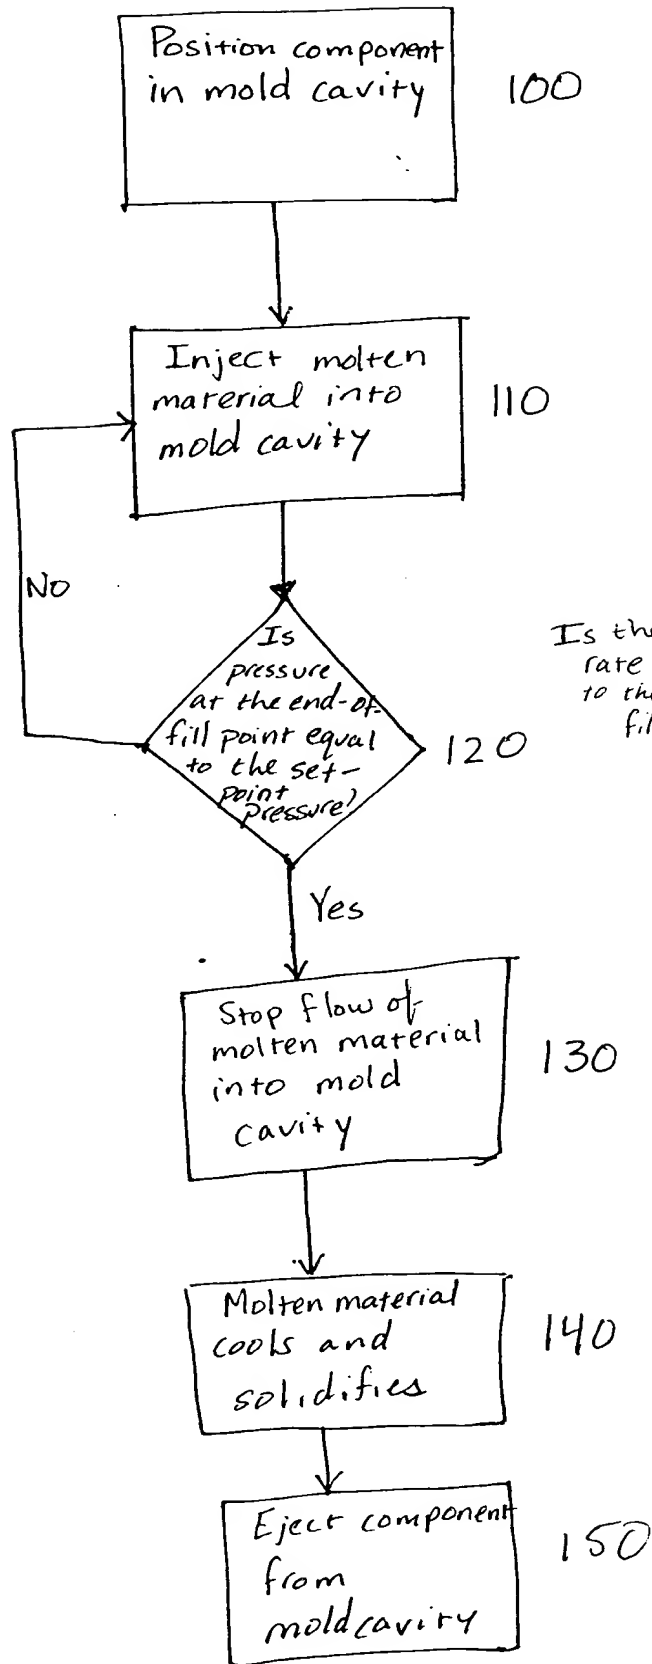 Position component
in mold cavity
100
Inject molten
material into
mold cavity
110
No
Is
pressure
at the end-of-
fill point equal
to the set-
point
pressure?
120
Is the
rate
to the
fil
Yes
Stop flow of
molten material
into mold
cavity
130
Molten material
cools and
solidifies
140
Eject component
from
mold cavity
150